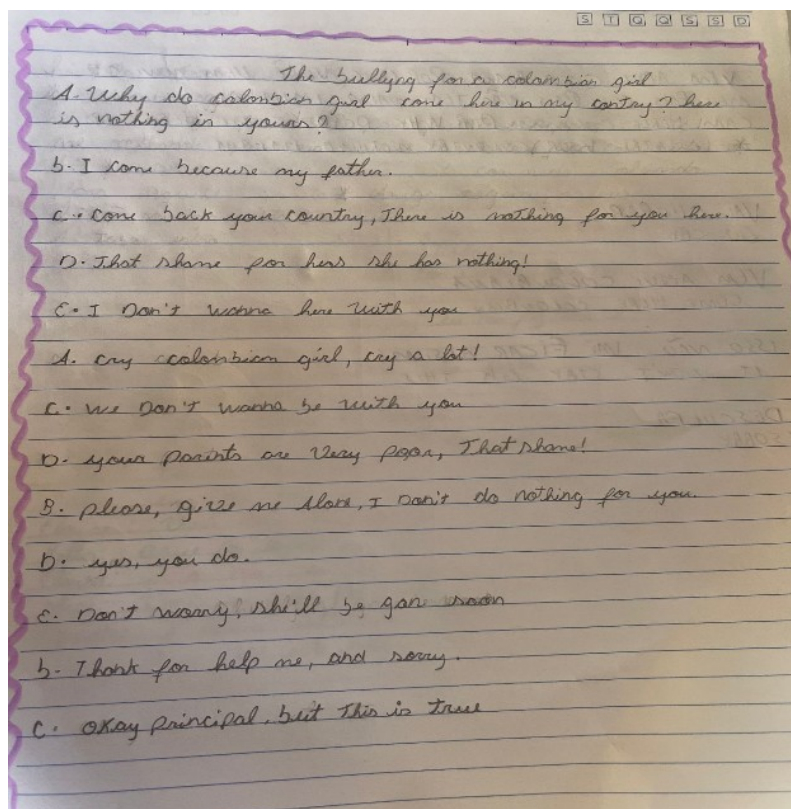 S T Q Q S S D
The bullyng for a colombian girl
A. Why do colombian girl come here in my contry? here
is nothing in yours?
b. I come because my father.
C. come back your country, There is nothing for you here.
D. That shame for hers she has nothing!
E. I Don't wanna here with you
A. cry colombian girl, cry a lot!
C. we Don't wanna be with you
D. your parints are very poor, That shame!
B. please, give me alone, I Don't do nothing for you.
D. yes, you do.
E. Don't worry, she'll be gan soon
b. Thank for help me, and sorry.
C. okay principal, but this is true